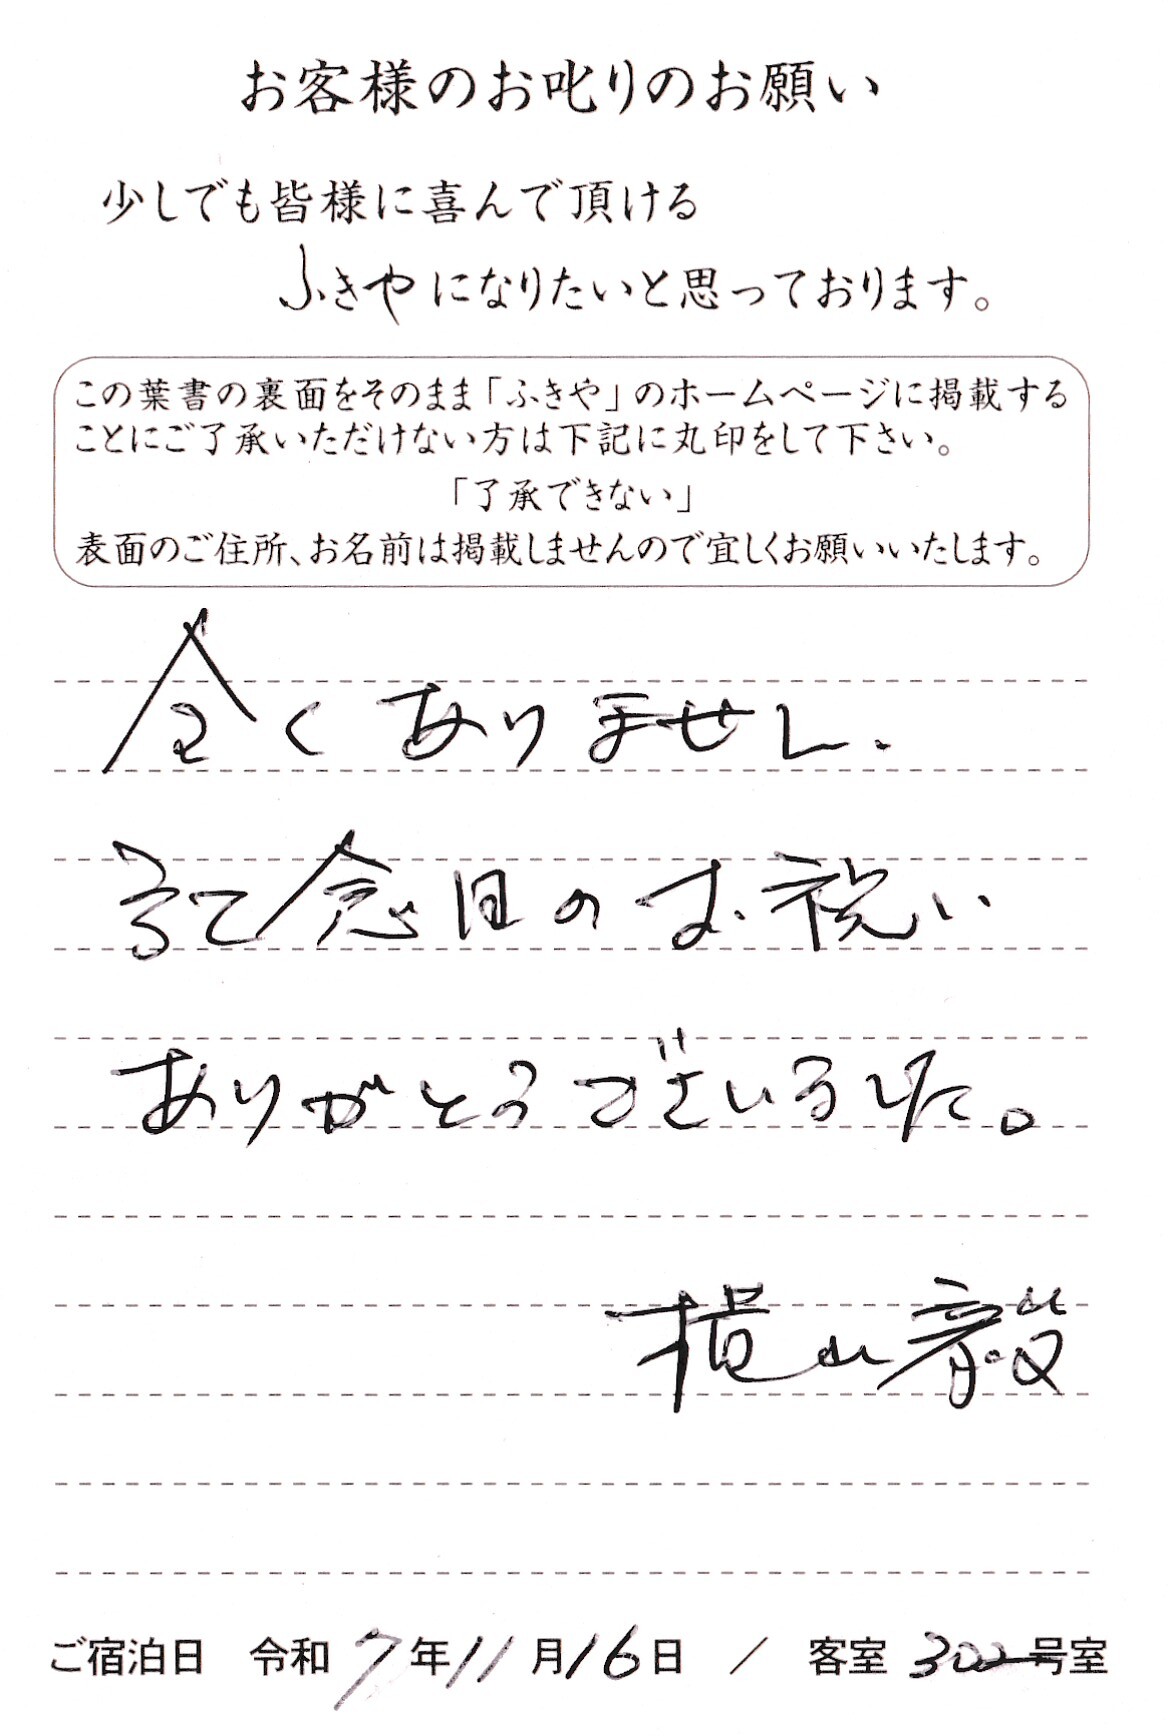 お客様のお叱りのお願い
少しでも皆様に喜んで頂ける
ふきやになりたいと思っております。
この葉書の裏面をそのまま「ふきや」のホームページに掲載する
ことにご了承いただけない方は下記に丸印をして下さい。
「了承できない」
表面のご住所、お名前は掲載しませんので宜しくお願いいたします。
全くありません.
記念日のお祝い
ありがとうございました。
横山毅
ご宿泊日 令和7年11月16日 / 客室302号室